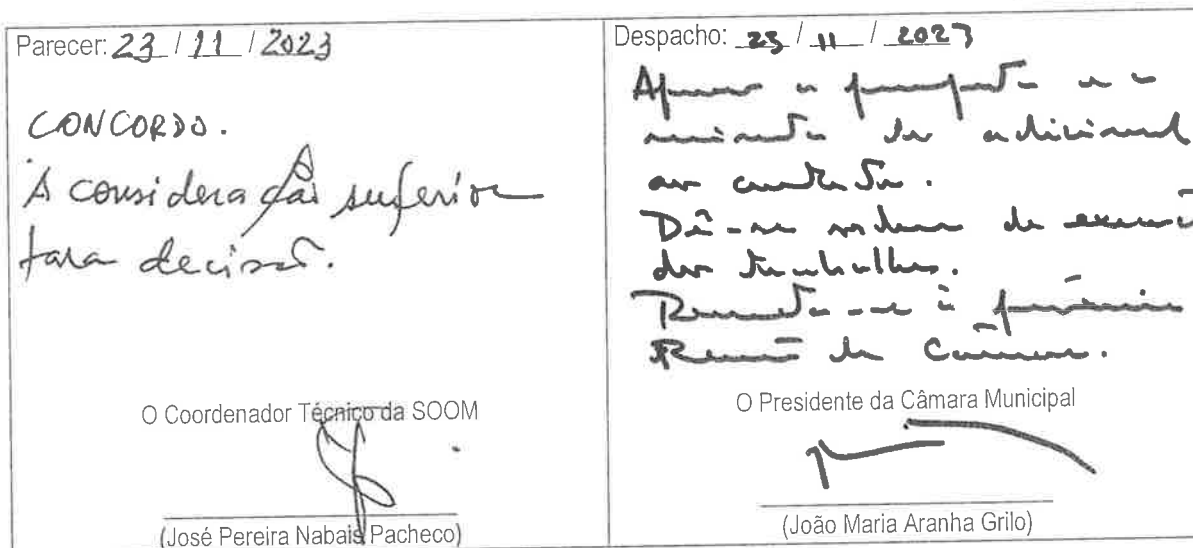 Parecer: 23 / 11 / 2023
CONCORDO.
À consideração superior
para decisão.
O Coordenador Técnico da SOOM
(José Pereira Nabais Pacheco)
Despacho: 23 / 11 / 2023
Aprovo a proposta e a
minuta de adicional
ao contrato.
Dê-se ordem de execução
dos trabalhos.
Remeta-se à próxima
Reunião de Câmara.
O Presidente da Câmara Municipal
(João Maria Aranha Grilo)